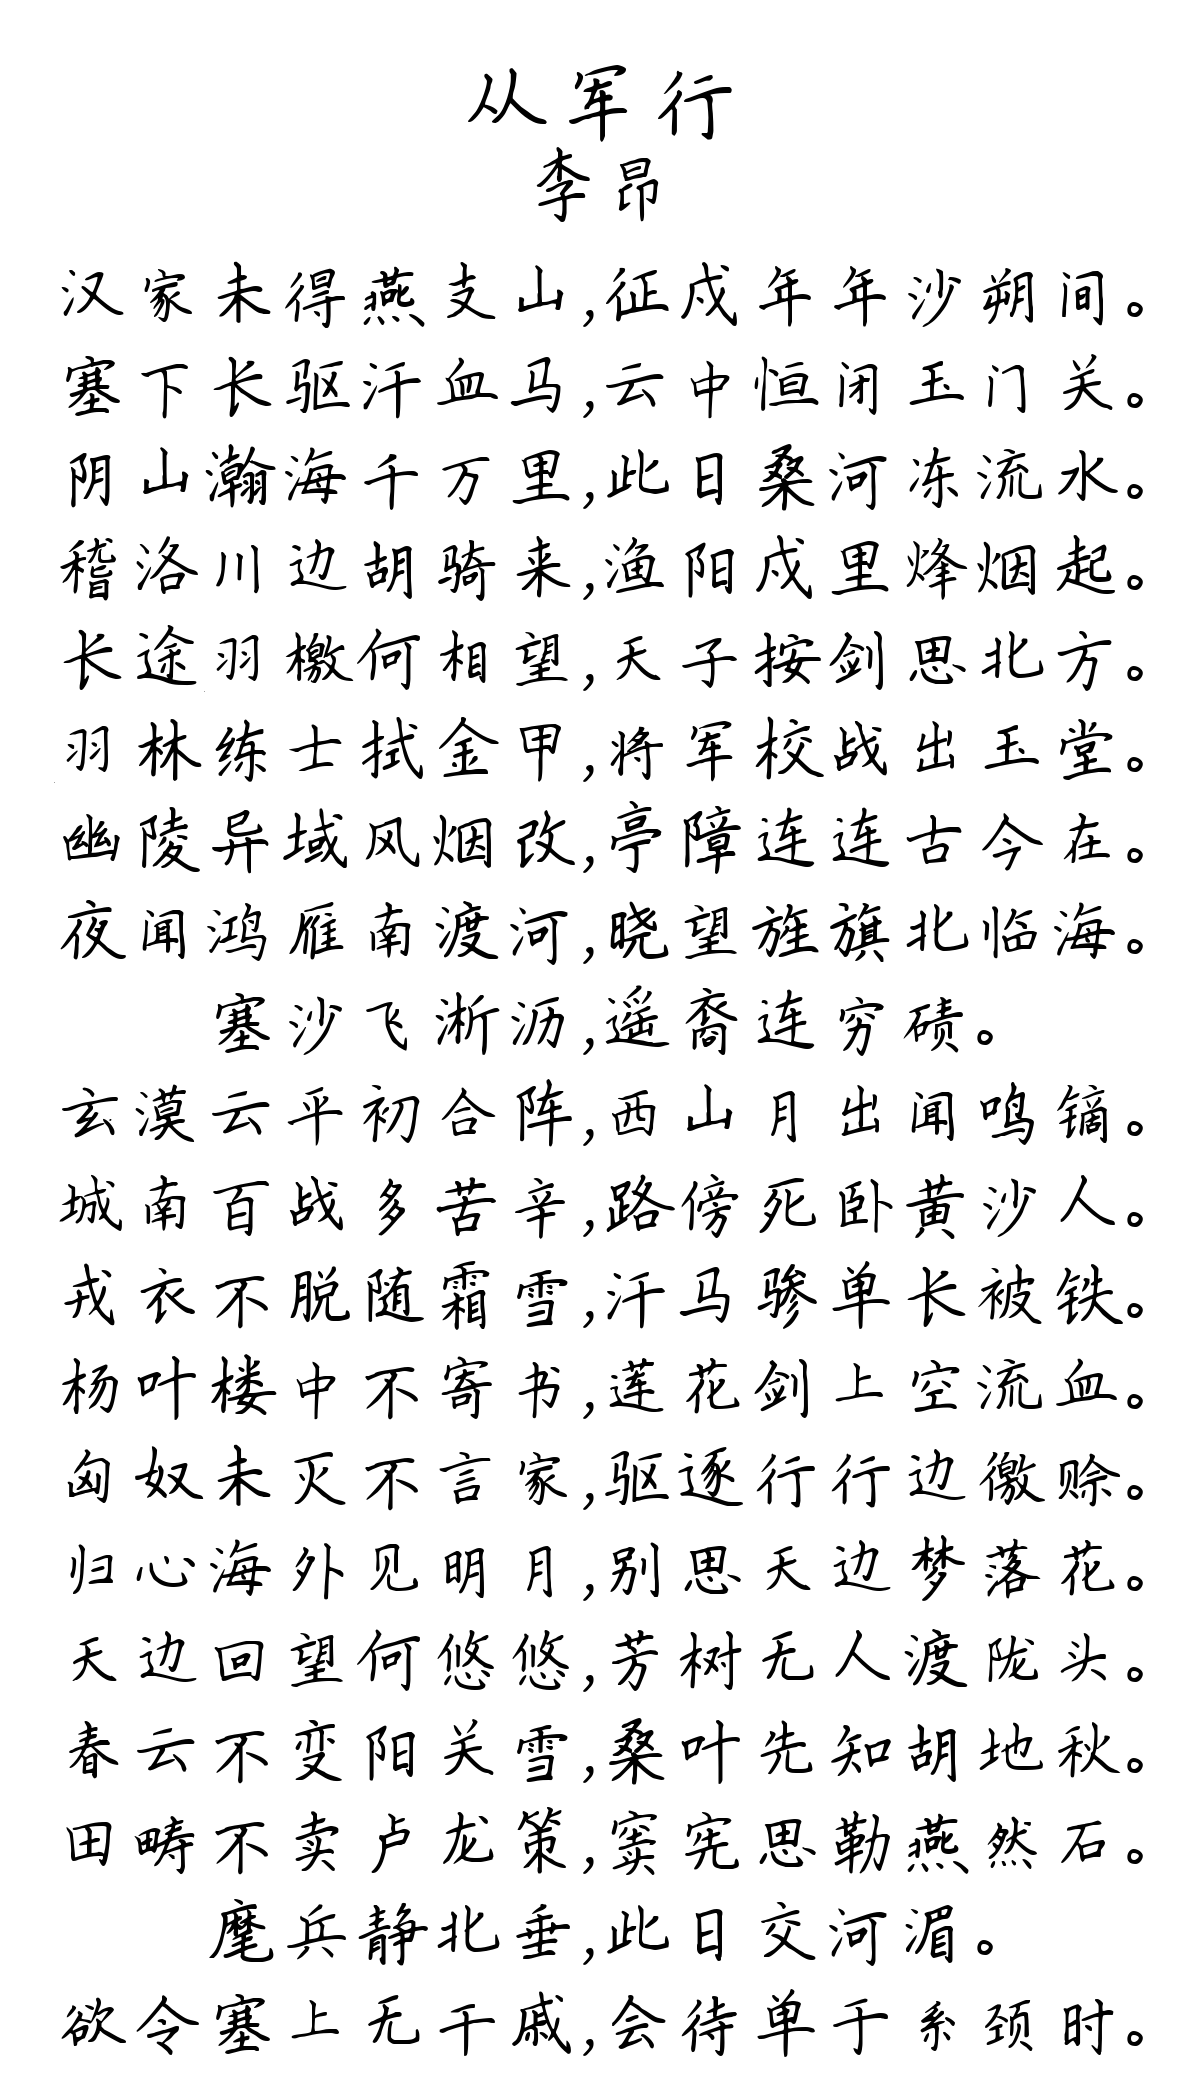 从军行
李昂
汉家未得燕支山,征戍年年沙朔间。
塞下长驱汗血马,云中恒闭玉门关。
阴山瀚海千万里,此日桑河冻流水。
稽洛川边胡骑来,渔阳戍里烽烟起。
长途羽檄何相望,天子按剑思北方。
羽林练士拭金甲,将军校战出玉堂。
幽陵异域风烟改,亭障连连古今在。
夜闻鸿雁南渡河,晓望旌旗北临海。
塞沙飞淅沥,遥裔连穷碛。
玄漠云平初合阵,西山月出闻鸣镝。
城南百战多苦辛,路傍死卧黄沙人。
戎衣不脱随霜雪,汗马骖单长被铁。
杨叶楼中不寄书,莲花剑上空流血。
匈奴未灭不言家,驱逐行行边徼赊。
归心海外见明月,别思天边梦落花。
天边回望何悠悠,芳树无人渡陇头。
春云不变阳关雪,桑叶先知胡地秋。
田畴不卖卢龙策,窦宪思勒燕然石。
麾兵静北垂,此日交河湄。
欲令塞上无干戚,会待单于系颈时。